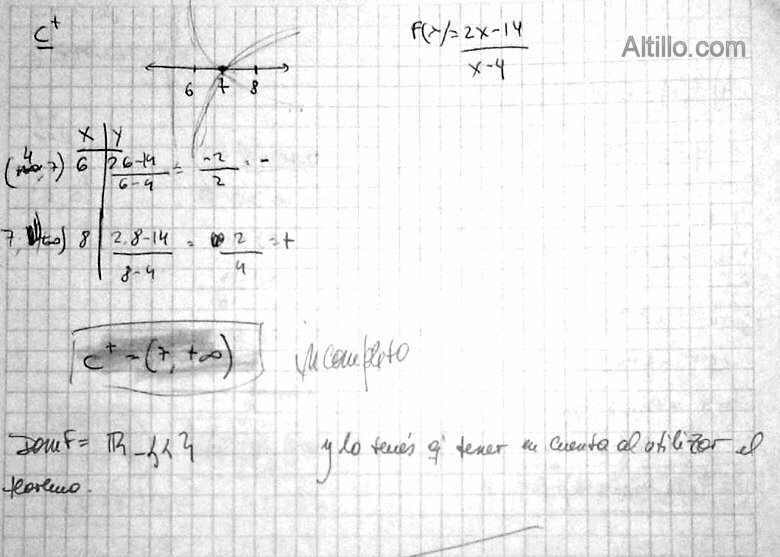 C⁺
F(x) = 2x-14 / x-4
Altillo.com
6 7 8
X | Y
(4, 7) 6 | 2.6-14 / 6-4 = -2 / 2 = -
7, +∞) 8 | 2.8-14 / 8-4 = 2 / 4 = +
C⁺ = (7, +∞) incompleto
Dom F = ℝ - {4} y lo tenés q' tener en cuenta al utilizar el
teorema.